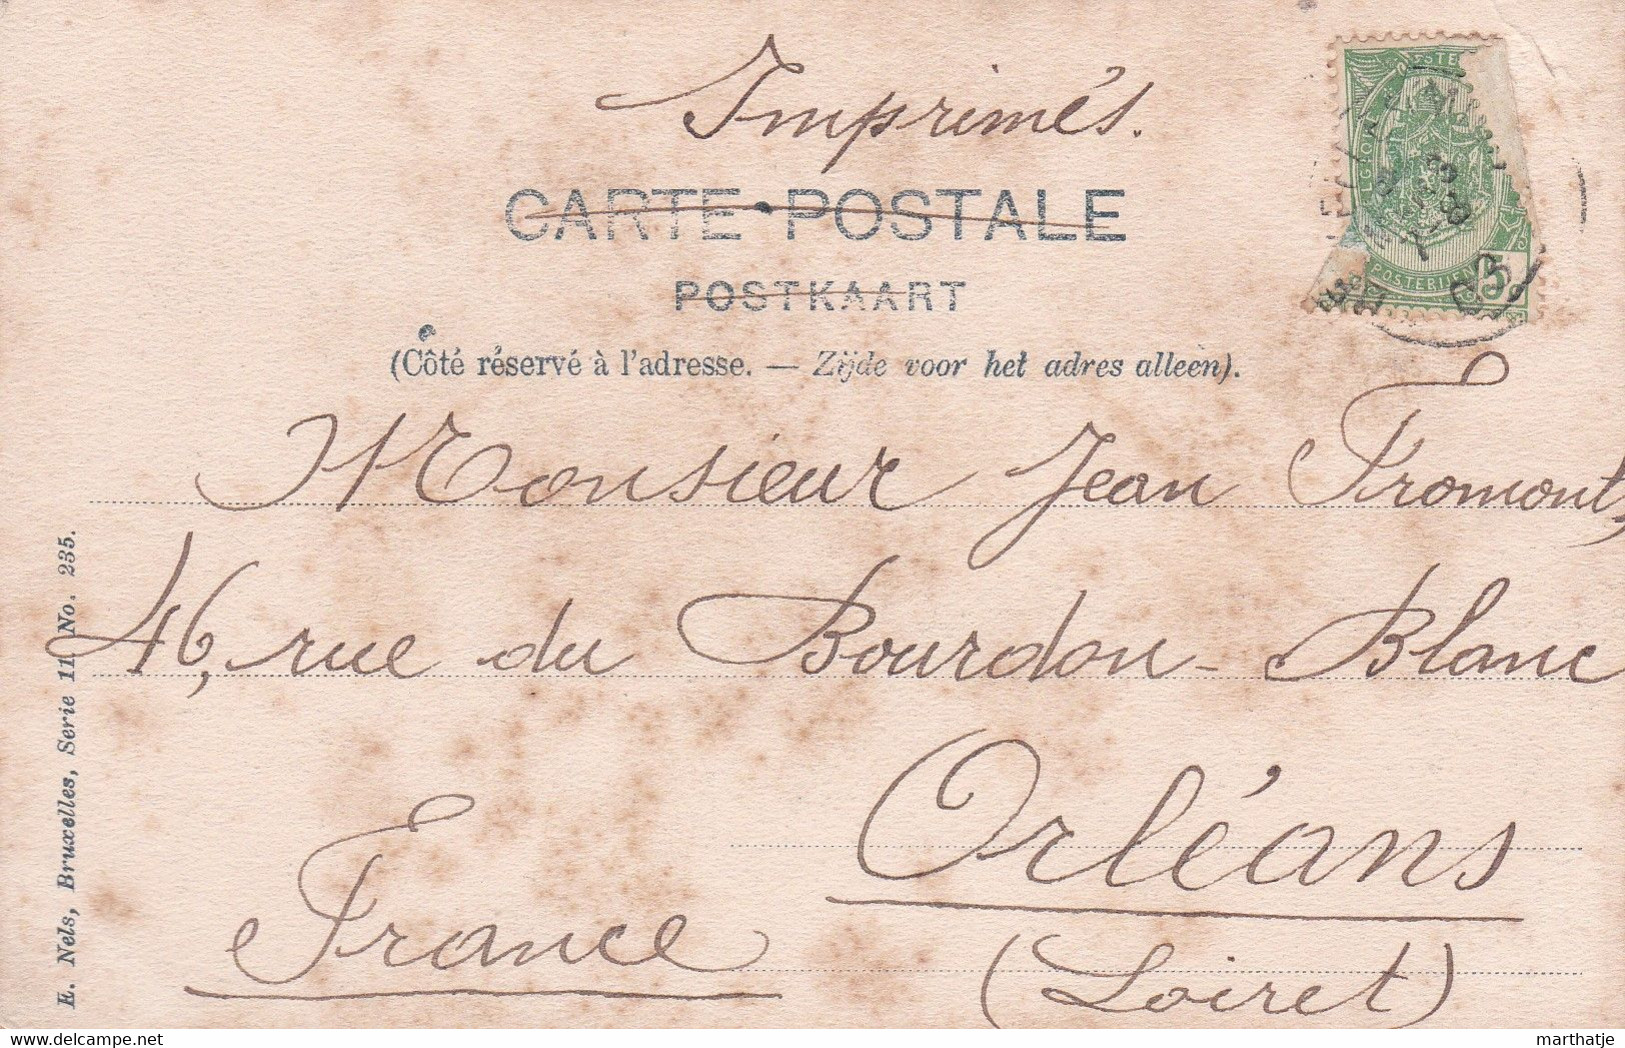 Imprimés.
CARTE POSTALE
POSTKAART
(Côté réservé à l'adresse. — Zijde voor het adres alleen).
Monsieur Jean Fromont,
46, rue du Bourdon-Blanc
Orléans
France
(Loiret)
E. Nels, Bruxelles, Serie 11 No. 235.
POSTERIJEN
5
marthatje